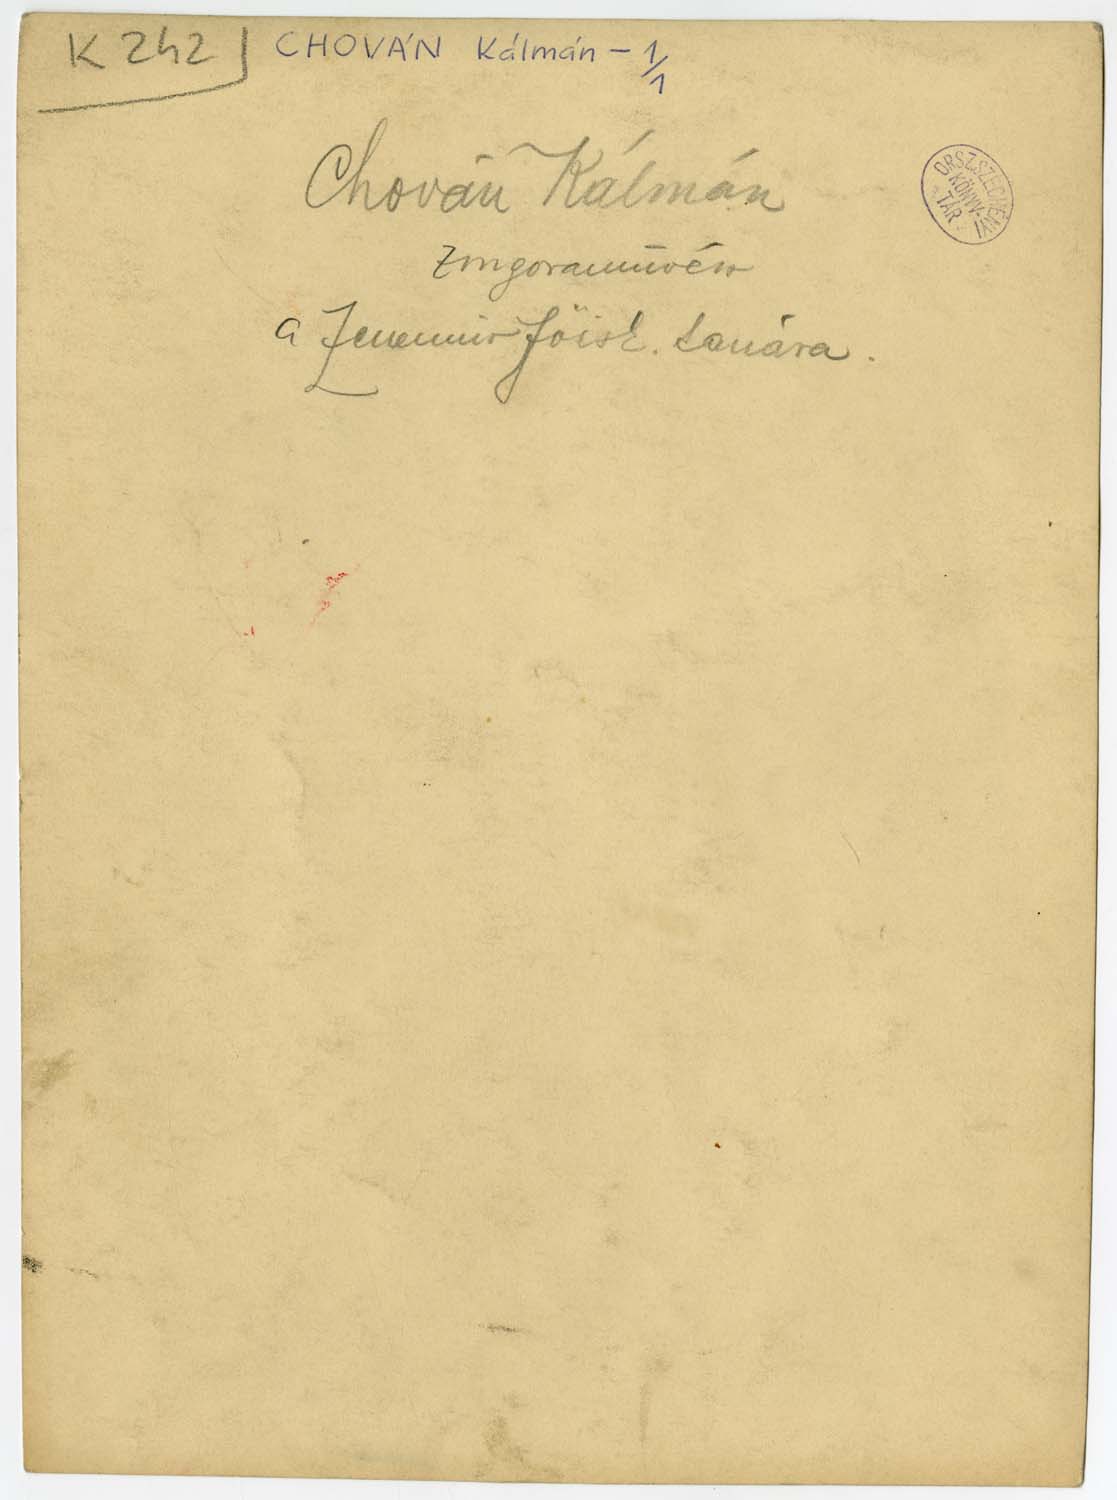 K 242
CHOVÁN Kálmán - 1/1
Chován Kálmán
zongoraművész
a Zeneműv Főisk. tanára.
ORSZ. SZÉCHÉNYI
KÖNYV-
TÁR